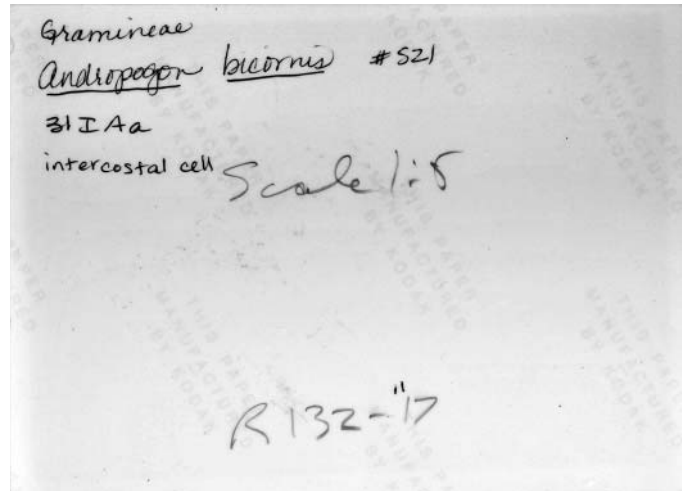 Gramineae
Andropogon bicornis #S21
31 I Aa
intercostal cell
Scale 1:5
R132-"17
THIS PAPER
MANUFACTURED
BY KODAK